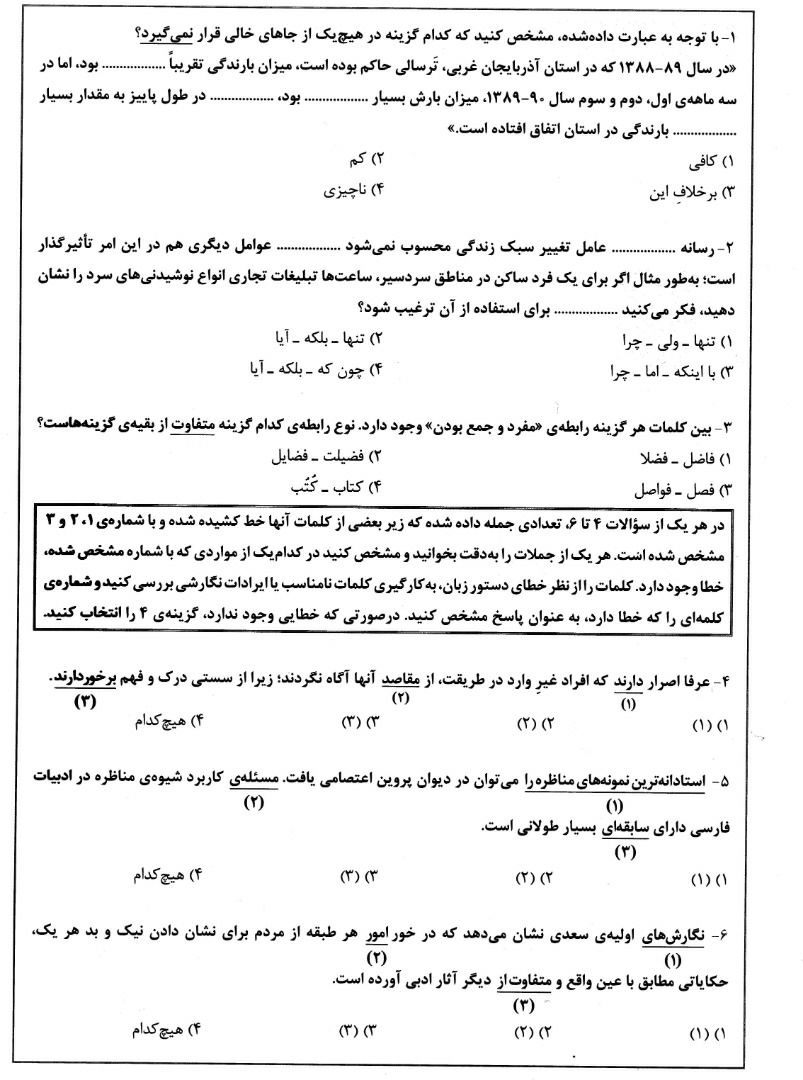 ۱- با توجه به عبارت داده‌شده، مشخص کنید که کدام گزینه در هیچ‌یک از جاهای خالی قرار نمی‌گیرد؟
«در سال ۸۹-۱۳۸۸ که در استان آذربایجان غربی، تَرسالی حاکم بوده است، میزان بارندگی تقریباً .................. بود، اما در
سه ماهه‌ی اول، دوم و سوم سال ۹۰-۱۳۸۹، میزان بارش بسیار .................. بود، .................. در طول پاییز به مقدار بسیار
.................. بارندگی در استان اتفاق افتاده است.»
۱) کافی ۲) کم
۳) برخلافِ این ۴) ناچیزی
۲- رسانه .................. عامل تغییر سبک زندگی محسوب نمی‌شود .................. عوامل دیگری هم در این امر تأثیرگذار
است؛ به‌طور مثال اگر برای یک فرد ساکن در مناطق سردسیر، ساعت‌ها تبلیغات تجاری انواع نوشیدنی‌های سرد را نشان
دهید، فکر می‌کنید .................. برای استفاده از آن ترغیب شود؟
۱) تنها ـ ولی ـ چرا ۲) تنها ـ بلکه ـ آیا
۳) با اینکه ـ اما ـ چرا ۴) چون که ـ بلکه ـ آیا
۳- بین کلمات هر گزینه رابطه‌ی «مفرد و جمع بودن» وجود دارد. نوع رابطه‌ی کدام گزینه متفاوت از بقیه‌ی گزینه‌هاست؟
۱) فاضل ـ فضلا ۲) فضیلت ـ فضایل
۳) فصل ـ فواصل ۴) کتاب ـ کُتُب
در هر یک از سؤالات ۴ تا ۶، تعدادی جمله داده شده که زیر بعضی از کلمات آنها خط کشیده شده و با شماره‌ی ۱، ۲ و ۳
مشخص شده است. هر یک از جملات را به‌دقت بخوانید و مشخص کنید در کدام‌یک از مواردی که با شماره مشخص شده،
خطا وجود دارد. کلمات را از نظر خطای دستور زبان، به‌کارگیری کلمات نامناسب یا ایرادات نگارشی بررسی کنید و شماره‌ی
کلمه‌ای را که خطا دارد، به عنوان پاسخ مشخص کنید. درصورتی که خطایی وجود ندارد، گزینه‌ی ۴ را انتخاب کنید.
۴- عرفا اصرار دارند که افراد غیرِ وارد در طریقت، از مقاصد آنها آگاه نگردند؛ زیرا از سستی درک و فهم برخوردارند.
(۱) (۲) (۳)
۱) (۱) ۲) (۲) ۳) (۳) ۴) هیچ‌کدام
۵- استادانه‌ترین نمونه‌های مناظره را می‌توان در دیوان پروین اعتصامی یافت. مسئله‌ی کاربرد شیوه‌ی مناظره در ادبیات
(۱) (۲)
فارسی دارای سابقه‌ای بسیار طولانی است.
(۳)
۱) (۱) ۲) (۲) ۳) (۳) ۴) هیچ‌کدام
۶- نگارش‌های اولیه‌ی سعدی نشان می‌دهد که در خور امور هر طبقه از مردم برای نشان دادن نیک و بد هر یک،
(۱) (۲)
حکایاتی مطابق با عین واقع و متفاوت از دیگر آثار ادبی آورده است.
(۳)
۱) (۱) ۲) (۲) ۳) (۳) ۴) هیچ‌کدام